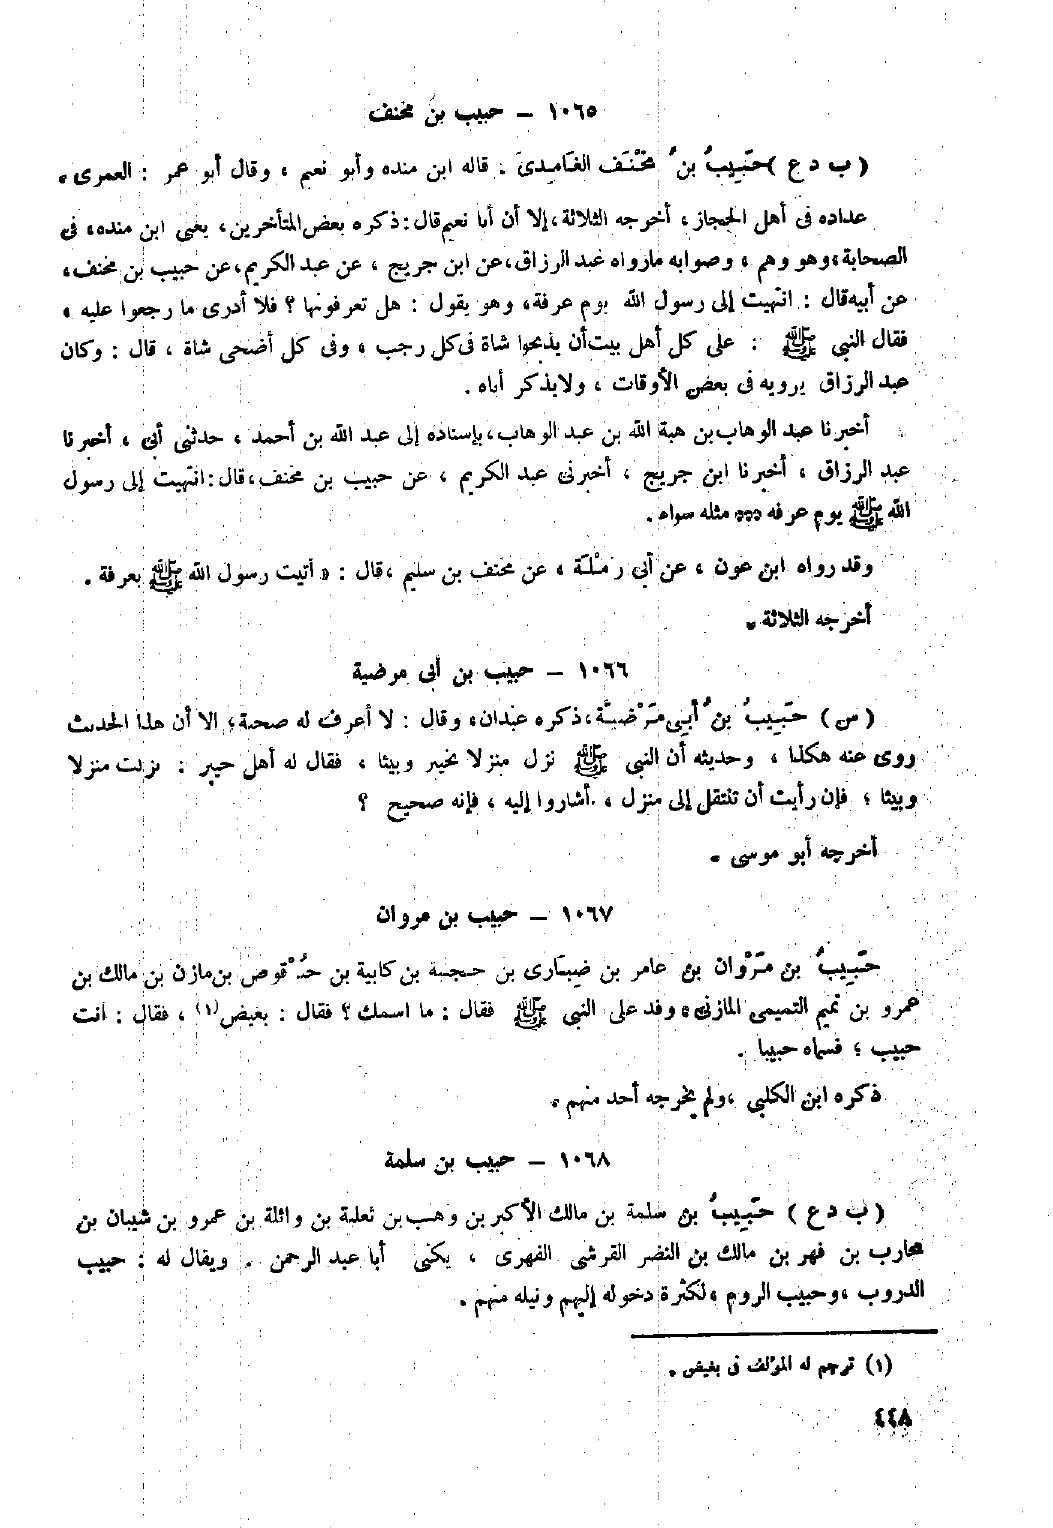 ١٠٦٥ – حبيب بن مخنف
( ب د ع ) حَبِيبُ بنُ مِخْنَف الغَامِدِىّ . قاله ابن منده وأبو نعيم ، وقال أبو عمر : العمرى .
عداده فى أهل الحجاز ، أخرجه الثلاثة ، إلا أن أبا نعيم قال : ذكره بعض المتأخرين ، يعنى ابن منده ، فى
الصحابة ، وهو وهم ، وصوابه مارواه عبد الرزاق ، عن ابن جريج ، عن عبد الكريم ، عن حبيب بن مخنف ،
عن أبيه قال : انتهيت إلى رسول الله يوم عرفة ، وهو يقول : هل تعرفونها ؟ فلا أدرى ما رجعوا عليه ،
فقال النبى ﷺ : على كل أهل بيت أن يذبحوا شاة فى كل رجب ، وفى كل أضحى شاة ، قال : وكان
عبد الرزاق يرويه فى بعض الأوقات ، ولا يذكر أباه .
أخبرنا عبد الوهاب بن هبة الله بن عبد الوهاب ، بإسناده إلى عبد الله بن أحمد ، حدثنى أبى ، أخبرنا
عبد الرزاق ، أخبرنا ابن جريج ، أخبرنى عبد الكريم ، عن حبيب بن مخنف ، قال : انتهيت إلى رسول
الله ﷺ يوم عرفه ... مثله سواء .
وقد رواه ابن عون ، عن أبى رَمْلَة ، عن مخنف بن سليم ، قال : « أتيت رسول الله ﷺ بعرفة .
أخرجه الثلاثة .
١٠٦٦ – حبيب بن أبى مرضية
( س ) حَبِيبُ بنُ أَبِى مَرْضِيَّة ، ذكره عبدان ، وقال : لا أعرف له صحبة ؛ الا أن هذا الحديث
روى عنه هكذا ، وحديثه أن النبى ﷺ نزل منزلا بخيبر وبيئا ، فقال له أهل خيبر : نزلت منزلا
وبيئا ؛ فإن رأيت أن تنتقل إلى منزل ، أشاروا إليه ، فإنه صحيح ؟
أخرجه أبو موسى .
١٠٦٧ – حبيب بن مروان
حَبِيبُ بن مَرْوان بن عامر بن ضِبَارى بن حجبة بن كابية بن حُرْقوص بن مازن بن مالك بن
عمرو بن تميم التميمى المازنى ، وفد على النبى ﷺ فقال : ما اسمك ؟ فقال : بغيض (١) ، فقال : أنت
حبيب ؛ فسماه حبيبا .
ذكره ابن الكلبى ، ولم يخرجه أحد منهم .
١٠٦٨ – حبيب بن سلمة
( ب د ع ) حَبِيبُ بن سلمة بن مالك الأكبر بن وهب بن ثعلبة بن واثلة بن عمرو بن شيبان بن
محارب بن فهر بن مالك بن النضر القرشى الفهرى ، يكنى أبا عبد الرحمن . ويقال له : حبيب
الدروب ، وحبيب الروم ، لكثرة دخوله إليهم ونيله منهم .
(١) ترجم له المؤلف فى بغيض .
٤٤٨